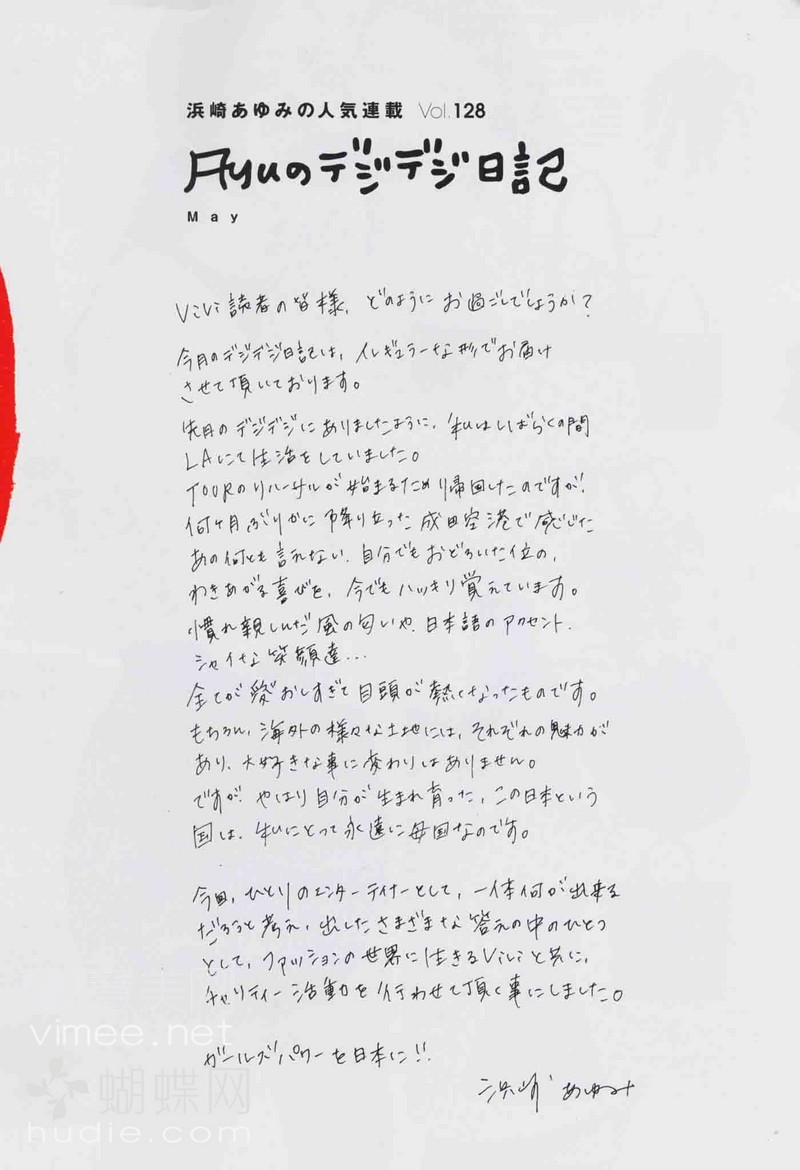 浜崎あゆみの人気連載 Vol.128
Ayuのデジデジ日記
May
ViVi読者の皆様、どのようにお過ごしでしょうか?
今月のデジデジ日記は、イレギュラーな形でお届け
させて頂いております。
先月のデジデジにありましたように、私はしばらくの間
LAにて生活をしていました。
TOURのリハーサルが始まるため帰国したのですが、
何ヶ月ぶりかに降り立った成田空港で感じた
あの何とも言えない、自分でもおどろいた位の、
わきあがる喜びを、今でもハッキリ覚えています。
慣れ親しんだ風の匂いや、日本語のアクセント、
シャイな笑顔達...
全てが愛おしすぎて目頭が熱くなったものです。
もちろん、海外の様々な土地には、それぞれの魅力が
あり、大好きな事に変わりはありません。
ですが、やはり自分が生まれ育った、この日本という
国は、私にとって永遠に母国なのです。
今回、ひとりのエンターテイナーとして、一体何が出来る
だろうと考え、出したさまざまな答えの中のひとつ
として、ファッションの世界に生きるViViと共に、
チャリティー活動を行わせて頂く事にしました。
ガールズパワーを日本に!!
浜崎あゆみ
vimee.net
蝴蝶网
hudie.com